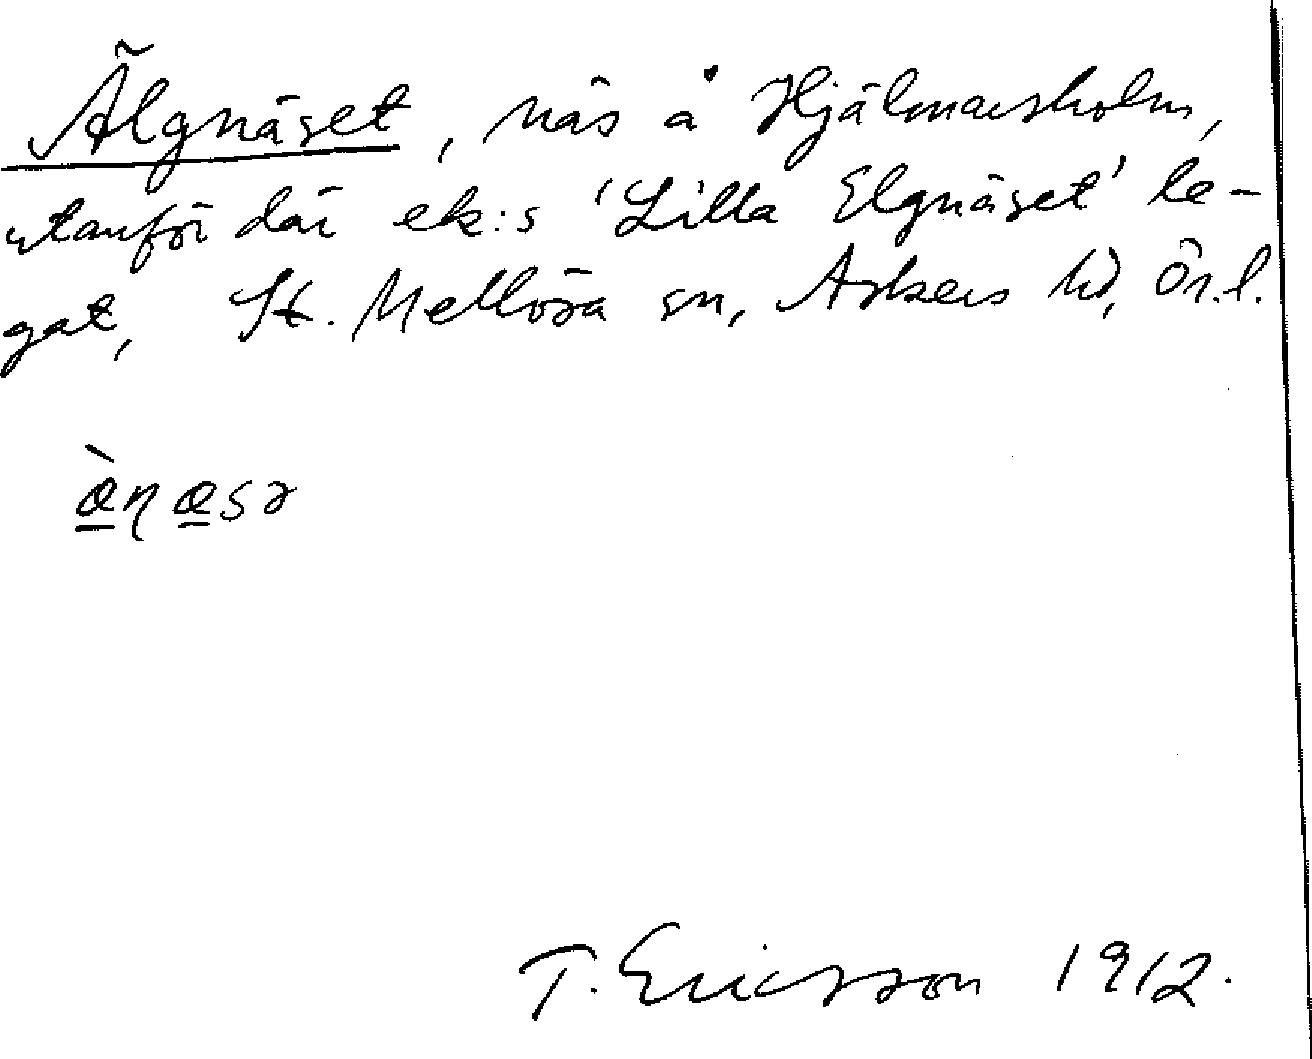 Älgnäset, näs å Hjälmarsholm,
utanför där ek:s 'Lilla Elgnäset' le-
gat, St. Mellösa sn, Askers hd, Ör.l.
æ̠̀ŋæ̠sə
T. Ericsson 1912.